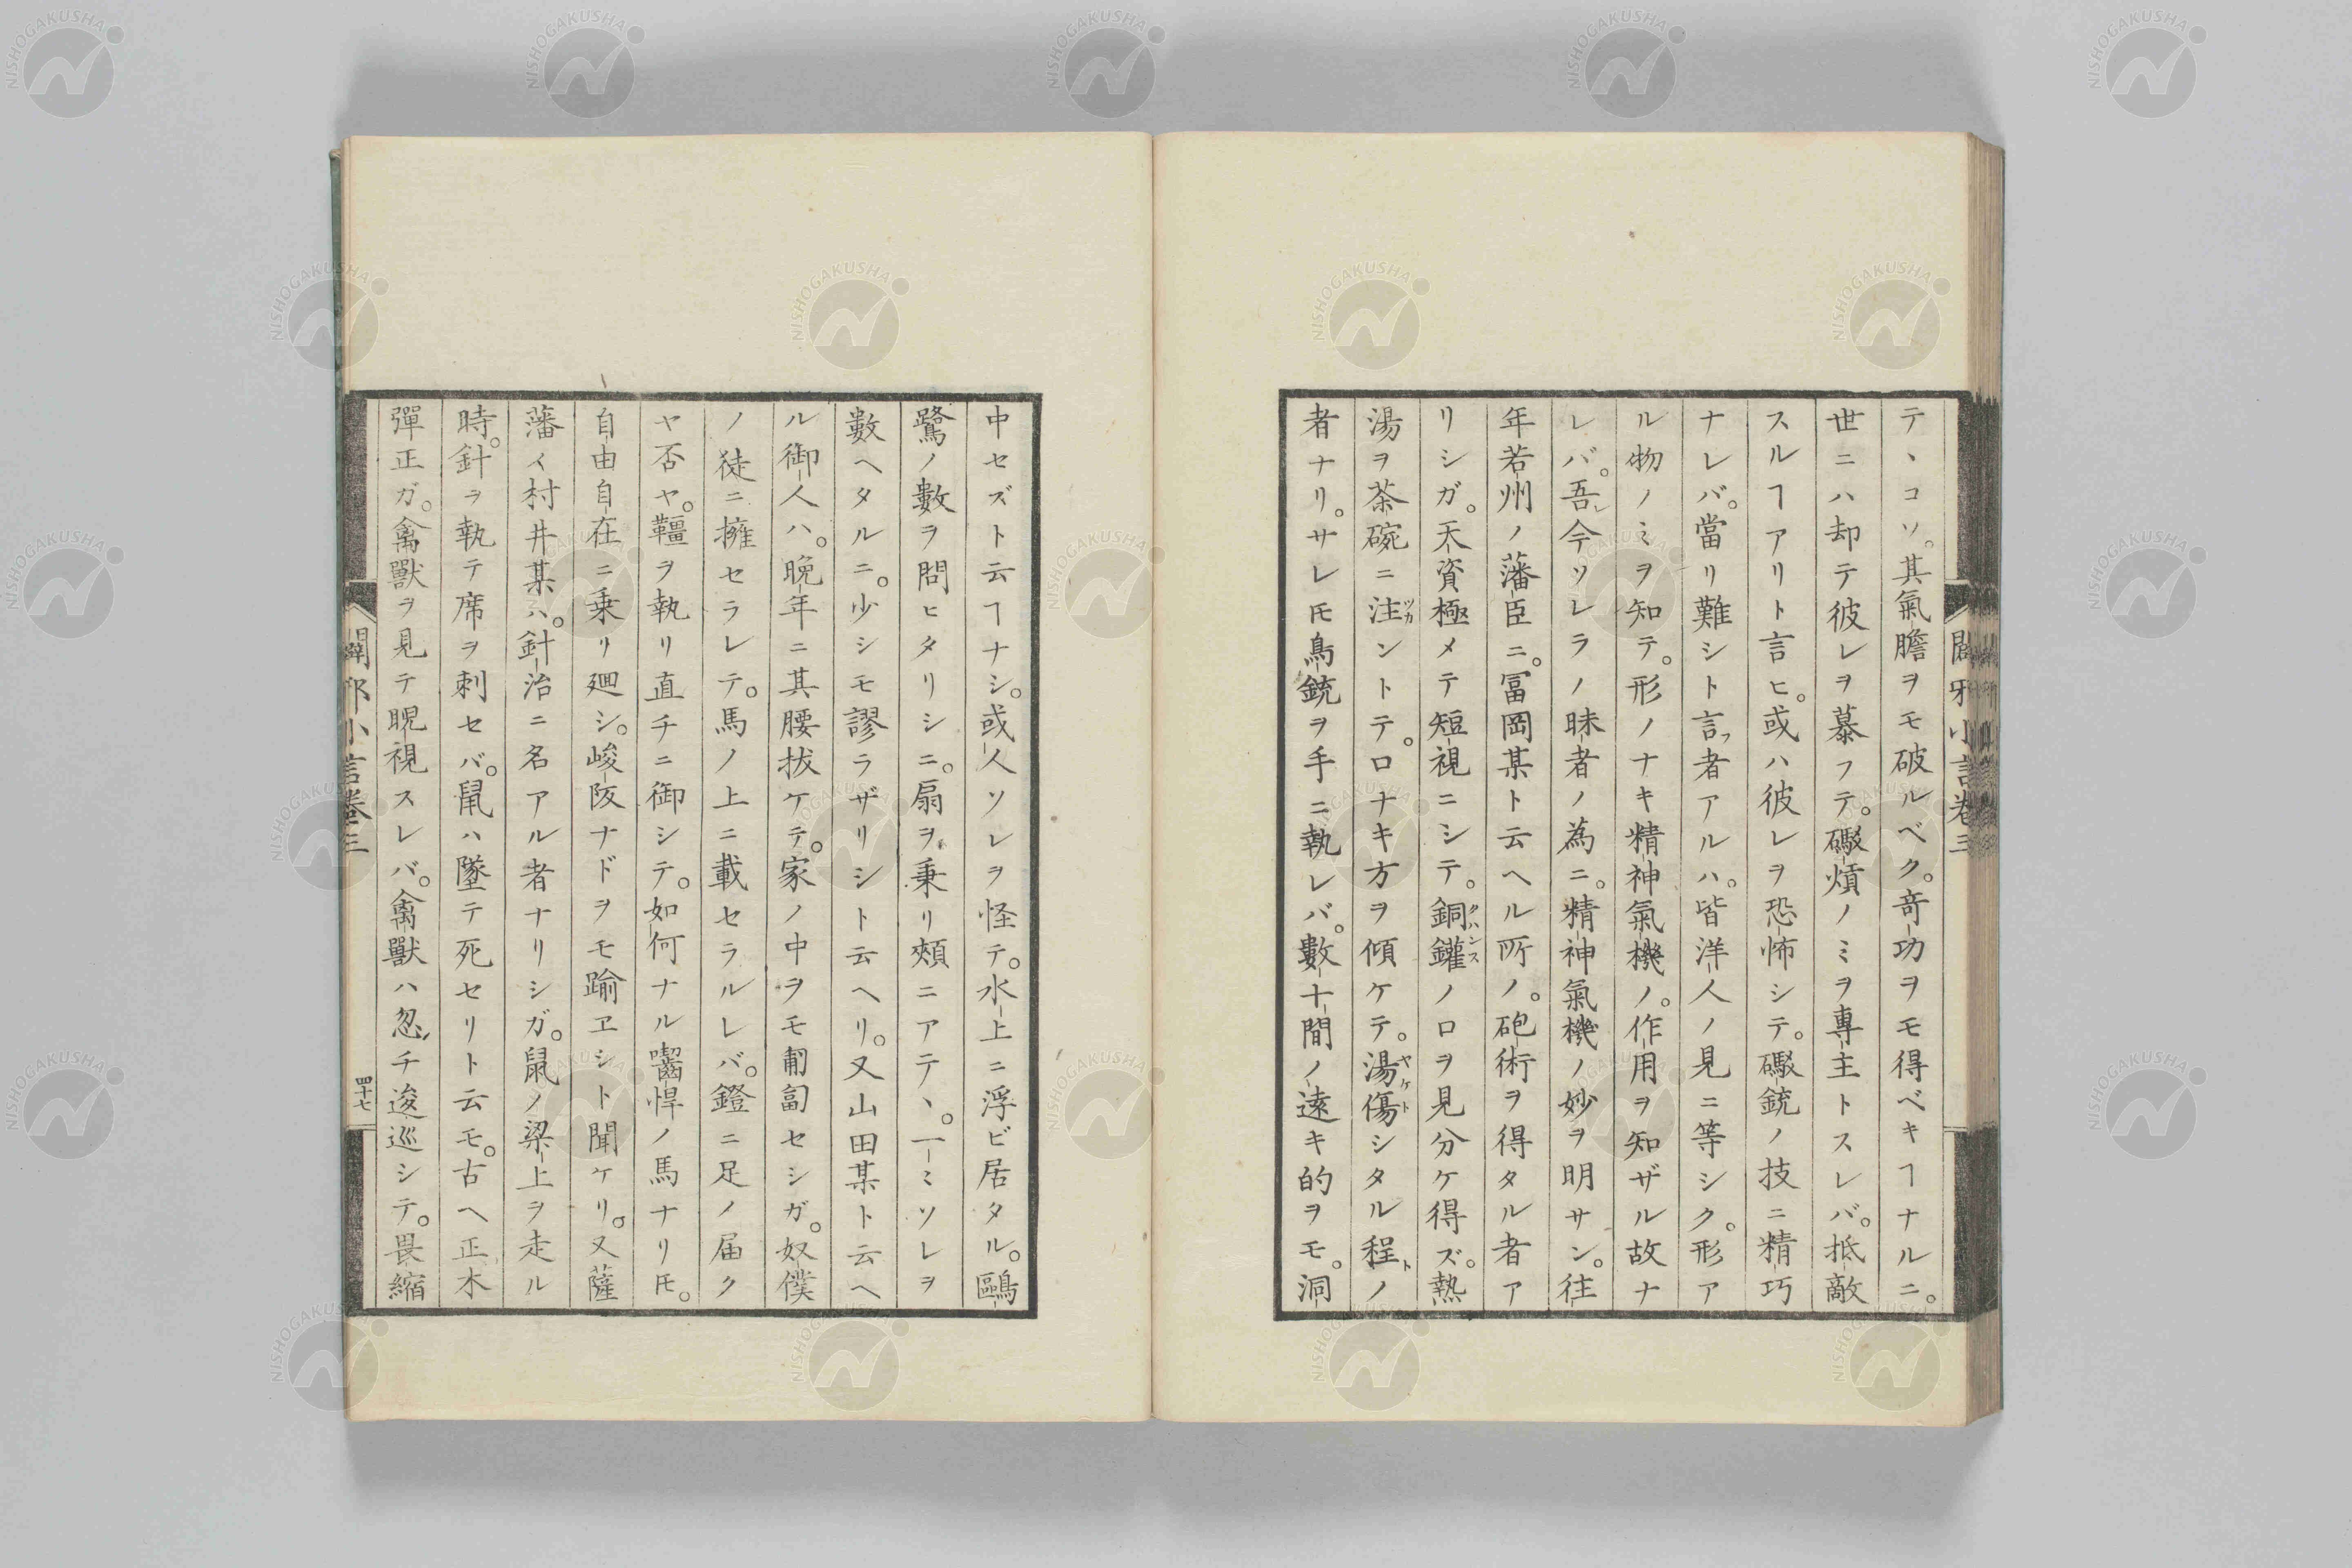 テヽコソ。其氣膽ヲモ破ルベク。竒功ヲモ得ベキヿナルニ。
世ニハ却テ彼レヲ慕フテ。礮熕ノミヲ專主トスレバ。抵敵
スルヿアリト言ヒ。或ハ彼レヲ恐怖シテ。礮銃ノ技ニ精巧
ナレバ。當リ難シト言フ者アルハ。皆洋人ノ見ニ等シク。形ア
ル物ノミヲ知テ。形ノナキ精神氣機ノ。作用ヲ知ザル故ナ
レバ。吾レ今ソレラノ昧者ノ為ニ。精神氣機ノ妙ヲ明サン。往
年若州ノ藩臣ニ。冨岡某ト云ヘル所ノ。砲術ヲ得タル者ア
リシガ。天資極メテ短視ニシテ。銅鑵ノ口ヲ見分ケ得ズ。熱
湯ヲ茶碗ニ注ントテ。口ナキ方ヲ傾ケテ。湯傷シタル程ノ
者ナリ。サレ𪜈鳥銃ヲ手ニ執レバ。數十間ノ遠キ的ヲモ。洞
中セズト云ヿナシ。或人ソレヲ怪テ。水上ニ浮ビ居タル。鷗
鷺ノ數ヲ問ヒタリシニ。扇ヲ秉リ頰ニアテヽ。一ミソレヲ
數ヘタルニ。少シモ謬ラザリシト云ヘリ。又山田某ト云ヘ
ル御人ハ。晩年ニ其腰拔ケテ。家ノ中ヲモ匍匐セシガ。奴僕
ノ徒ニ擁セラレテ。馬ノ上ニ載セラルレバ。鐙ニ足ノ届ク
ヤ否ヤ。韁ヲ執リ直チニ御シテ。如何ナル齧悍ノ馬ナリ𪜈。
自由自在ニ乗リ廻シ。峻阪ナドヲモ踰エシト聞ケリ。又薩
藩イ村井某ハ。針治ニ名アル者ナリシガ。鼠ノ梁上ヲ走ル
時。針ヲ執テ席ヲ刺セバ。鼠ハ墜テ死セリト云モ。古ヘ正木
彈正ガ。禽獸ヲ見テ睨視スレバ。禽獸ハ忽チ逡巡シテ。畏縮
闢邪小言卷三
四十七
NISHOGAKUSHA